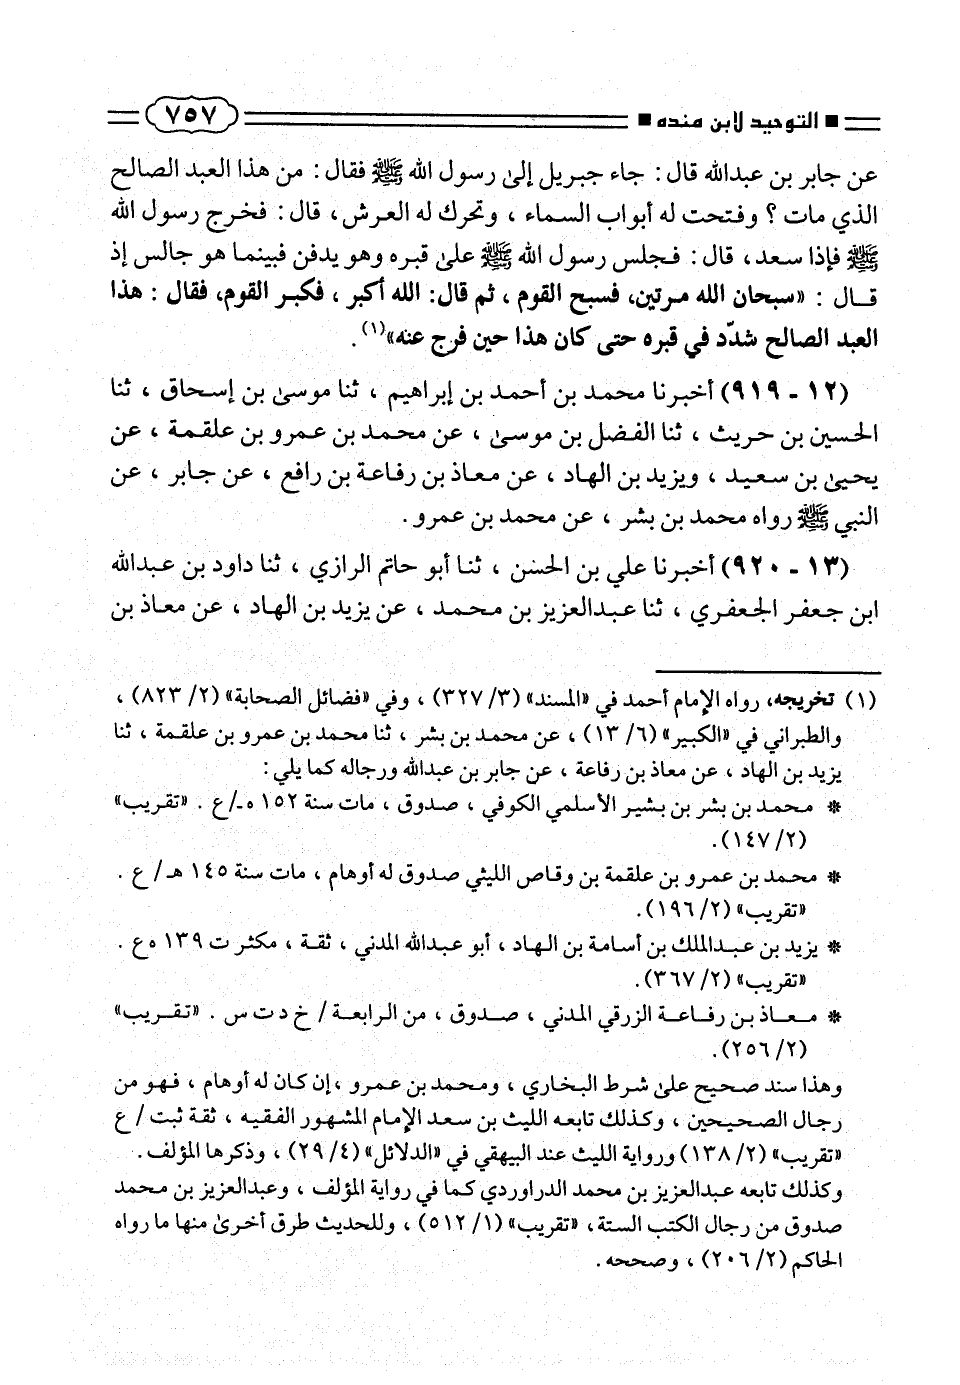 ■ التوحيد لابن منده ■ ٧٥٧
عن جابر بن عبدالله قال : جاء جبريل إلىٰ رسول الله ﷺ فقال : من هذا العبد الصالح
الذي مات ؟ وفتحت له أبواب السماء ، وتحرك له العرش ، قال : فخرج رسول الله
ﷺ فإذا سعد ، قال : فجلس رسول الله ﷺ علىٰ قبره وهو يدفن فبينما هو جالس إذ
قال : «سبحان الله مرتين، فسبح القوم ، ثم قال: الله أكبر ، فكبر القوم، فقال : هذا
العبد الصالح شدّد في قبره حتى كان هذا حين فرج عنه»(١).
(١٢ - ٩١٩) أخبرنا محمد بن أحمد بن إبراهيم ، ثنا موسىٰ بن إسحاق ، ثنا
الحسين بن حريث ، ثنا الفضل بن موسىٰ ، عن محمد بن عمرو بن علقمة ، عن
يحيىٰ بن سعيد ، ويزيد بن الهاد ، عن معاذ بن رفاعة بن رافع ، عن جابر ، عن
النبي ﷺ رواه محمد بن بشر ، عن محمد بن عمرو .
(١٣ - ٩٢٠) أخبرنا علي بن الحسن ، ثنا أبو حاتم الرازي ، ثنا داود بن عبدالله
ابن جعفر الجعفري ، ثنا عبدالعزيز بن محمد ، عن يزيد بن الهاد ، عن معاذ بن
(١) تخريجه، رواه الإمام أحمد في «المسند» (٣/ ٣٢٧) ، وفي «فضائل الصحابة» (٢/ ٨٢٣) ،
والطبراني في «الكبير» (٦/ ١٣) ، عن محمد بن بشر ، ثنا محمد بن عمرو بن علقمة ، ثنا
يزيد بن الهاد ، عن معاذ بن رفاعة ، عن جابر بن عبدالله ورجاله كما يلي :
* محمد بن بشر بن بشير الأسلمي الكوفي ، صدوق ، مات سنة ١٥٢ هـ/ع . «تقريب»
(٢/ ١٤٧).
* محمد بن عمرو بن علقمة بن وقاص الليثي صدوق له أوهام ، مات سنة ١٤٥ هـ/ ع .
«تقريب» (٢/ ١٩٦).
* يزيد بن عبدالملك بن أسامة بن الهاد ، أبو عبدالله المدني ، ثقة ، مكثر ت ١٣٩ ه ع .
«تقريب» (٢/ ٣٦٧).
* معاذ بن رفاعة الزرقي المدني ، صدوق ، من الرابعة / خ د ت س . «تقريب»
(٢/ ٢٥٦).
وهذا سند صحيح علىٰ شرط البخاري ، ومحمد بن عمرو ،إن كان له أوهام ، فهو من
رجال الصحيحين ، وكذلك تابعه الليث بن سعد الإمام المشهور الفقيه ، ثقة ثبت / ع
«تقريب» (٢/ ١٣٨) ورواية الليث عند البيهقي في «الدلائل» (٤/ ٢٩) ، وذكرها المؤلف .
وكذلك تابعه عبدالعزيز بن محمد الدراوردي كما في رواية المؤلف ، وعبدالعزيز بن محمد
صدوق من رجال الكتب الستة، «تقريب» (١/ ٥١٢) ، وللحديث طرق أخرىٰ منها ما رواه
الحاكم (٢/ ٢٠٦) ، وصححه .